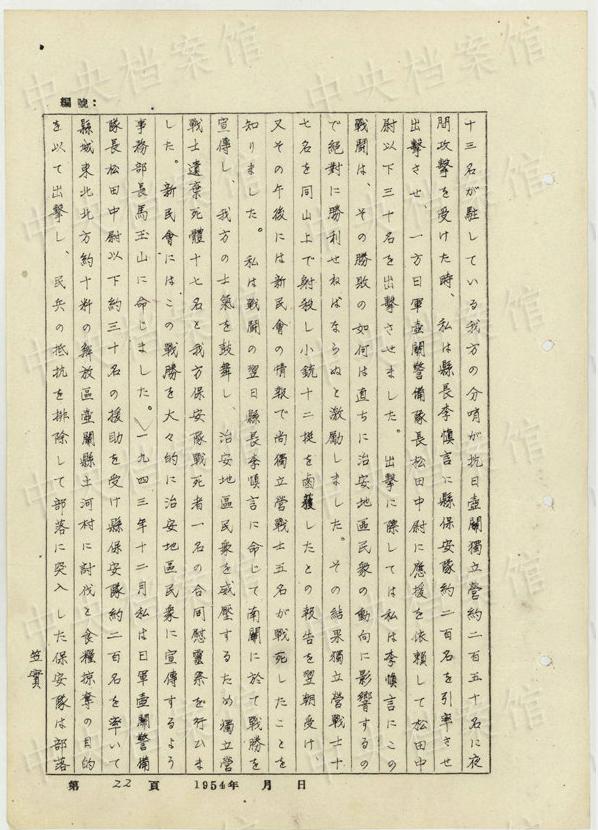 編號：
十三名が駐している我方の分哨が抗日壺關獨立營約二百五十名に夜
間攻擊を受けた時、私は縣長李慎言に縣保安隊約二百名を引率させ
出擊させ、一方日軍壺關警備隊長松田中尉に應援を依賴して松田中
尉以下三十名を出擊させました。出擊に際しては私は李慎言にこの
戰鬪は、その勝敗の如何は直ちに治安地區民衆の動向に影響するの
で絕對に勝利せねばならぬと激勵しました。その結果獨立營戰士十
七名を同山上で射殺し小銃十二挺を鹵獲したとの報告を翌朝受け、
又その午後には新民會の情報で尚獨立營戰士五名が戰死したことを
知りました。私は戰鬪の翌日縣長李慎言に命じて南關に於て戰勝を
宣傳し、我方の士氣を鼓舞し、治安地區民衆を威壓するため獨立營
戰士遺棄死體十七名と我方保安隊戰死者一名の合同慰靈祭を行ひま
した。新民會にはこの戰勝を大々的に治安地區民衆に宣傳するよう
事務部長馬玉山に命じました。一九四三年十二月私は日軍壺關警備
隊長松田中尉以下約三十名の援助を受け縣保安隊約二百名を率いて
縣城東北北方約十粁の解放區壺關縣土河村に討伐と食糧掠奪の目的
を以て出擊し、民兵の抵抗を排除して部落に突入した保安隊は部落
笠實
第 22 頁 1954年 月 日
中央档案馆